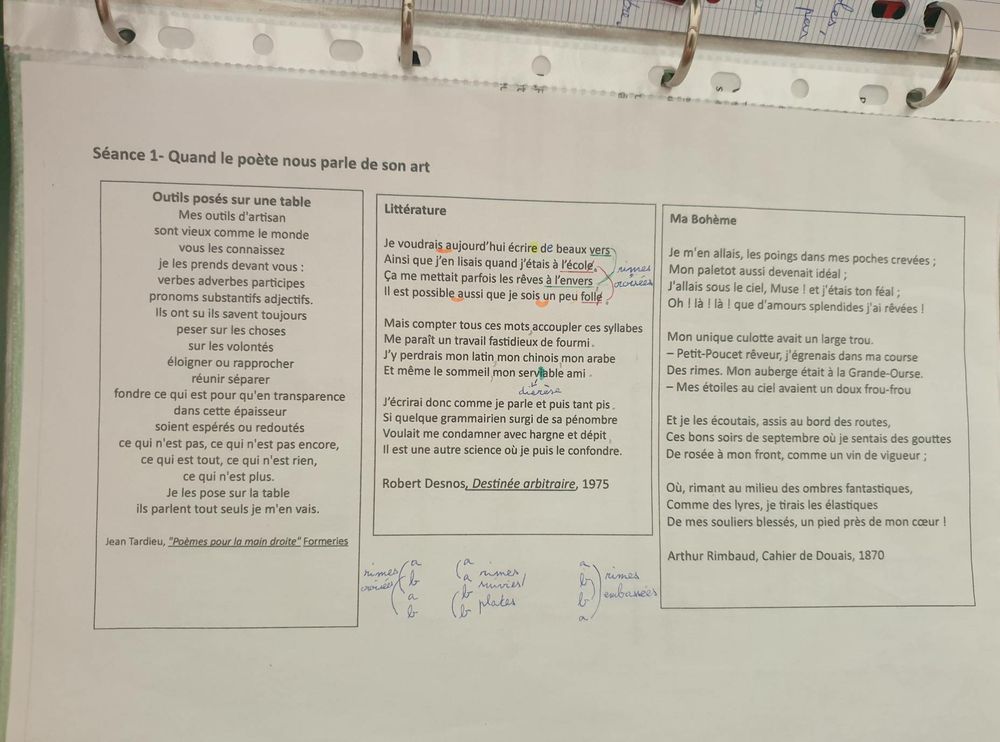 Séance 1- Quand le poète nous parle de son art
Outils posés sur une table
Mes outils d'artisan
sont vieux comme le monde
vous les connaissez
je les prends devant vous :
verbes adverbes participes
pronoms substantifs adjectifs.
Ils ont su ils savent toujours
peser sur les choses
sur les volontés
éloigner ou rapprocher
réunir séparer
fondre ce qui est pour qu'en transparence
dans cette épaisseur
soient espérés ou redoutés
ce qui n'est pas, ce qui n'est pas encore,
ce qui est tout, ce qui n'est rien,
ce qui n'est plus.
Je les pose sur la table
ils parlent tout seuls je m'en vais.
Jean Tardieu, "Poèmes pour la main droite" Formeries
Littérature
Je voudrais aujourd'hui écrire de beaux vers
Ainsi que j'en lisais quand j'étais à l'école
Ça me mettait parfois les rêves à l'envers
Il est possible aussi que je sois un peu folle
rimes
croisées
Mais compter tous ces mots accoupler ces syllabes
Me paraît un travail fastidieux de fourmi
J'y perdrais mon latin mon chinois mon arabe
Et même le sommeil mon serviable ami
dièrèse
J'écrirai donc comme je parle et puis tant pis
Si quelque grammairien surgi de sa pénombre
Voulait me condamner avec hargne et dépit
Il est une autre science où je puis le confondre.
Robert Desnos, Destinée arbitraire, 1975
Ma Bohème
Je m'en allais, les poings dans mes poches crevées ;
Mon paletot aussi devenait idéal ;
J'allais sous le ciel, Muse ! et j'étais ton féal ;
Oh ! là ! là ! que d'amours splendides j'ai rêvées !
Mon unique culotte avait un large trou.
– Petit-Poucet rêveur, j'égrenais dans ma course
Des rimes. Mon auberge était à la Grande-Ourse.
– Mes étoiles au ciel avaient un doux frou-frou
Et je les écoutais, assis au bord des routes,
Ces bons soirs de septembre où je sentais des gouttes
De rosée à mon front, comme un vin de vigueur ;
Où, rimant au milieu des ombres fantastiques,
Comme des lyres, je tirais les élastiques
De mes souliers blessés, un pied près de mon cœur !
Arthur Rimbaud, Cahier de Douais, 1870
rimes
croisées
a
b
a
b
a
a
b
b
rimes
suivies/
plates
a
b
b
a
rimes
embassées